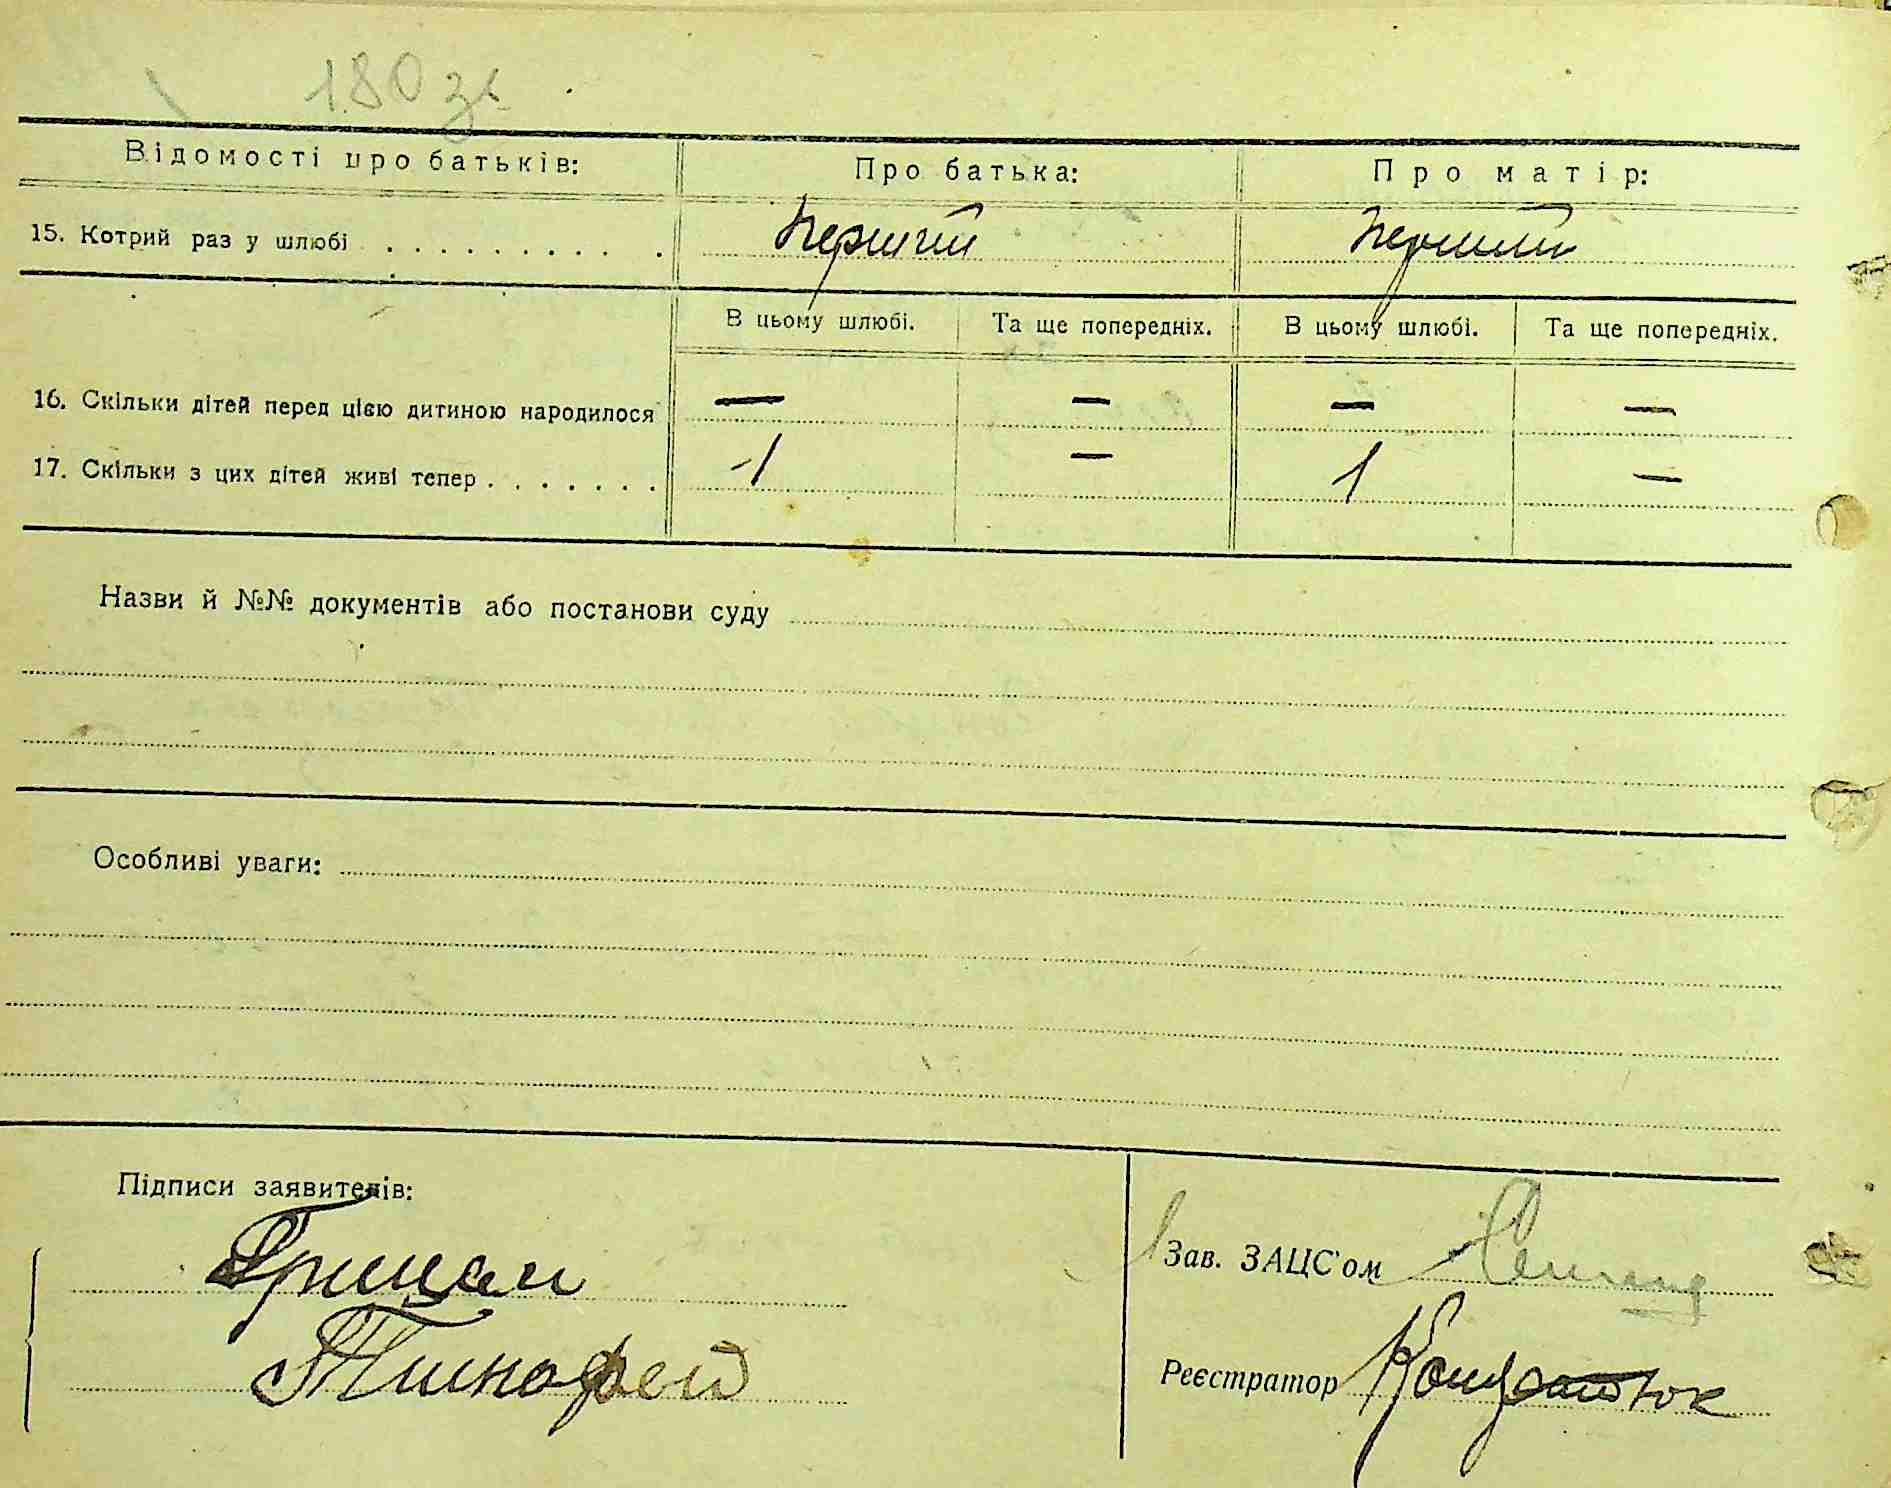 180 зв
Відомості про батьків: Про батька: Про матір:
15. Котрий раз у шлюбі . . . . . . . . . . Перший Перший
В цьому шлюбі. Та ще попередніх. В цьому шлюбі. Та ще попередніх.
16. Скільки дітей перед цією дитиною народилося — — — —
17. Скільки з цих дітей живі тепер . . . . . . . 1 — 1 —
Назви й №№ документів або постанови суду
Особливі уваги:
Підписи заявителів:
Грицай
Тимофей
Зав. ЗАЦС'ом
Реєстратор